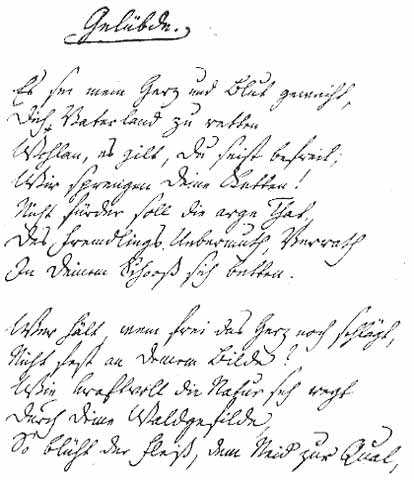 Gelübde.
Es sei mein Herz und Blut geweiht,
Dich Vaterland zu retten
Wohlan, es gilt, du seist befreit;
Wir sprengen deine Ketten!
Nicht fürder soll die arge That,
Des Fremdlings Uebermuth, Verrath
In deinem Schooß sich betten.
Wer hält, wem frei das Herz noch schlägt,
Nicht fest an deinem Bilde?
Wie kraftvoll die Natur sich regt
Durch deine Waldgefilde,
So blüht der Fleiß, dem Neid zur Qual,